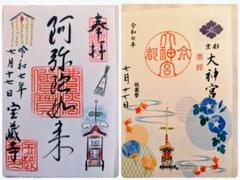 奉拝
阿弥陀如来
令和七年
七月十七日
宝蔵寺
京都
大神宮
奉拝
令和七年
七月十七日
祇園祭